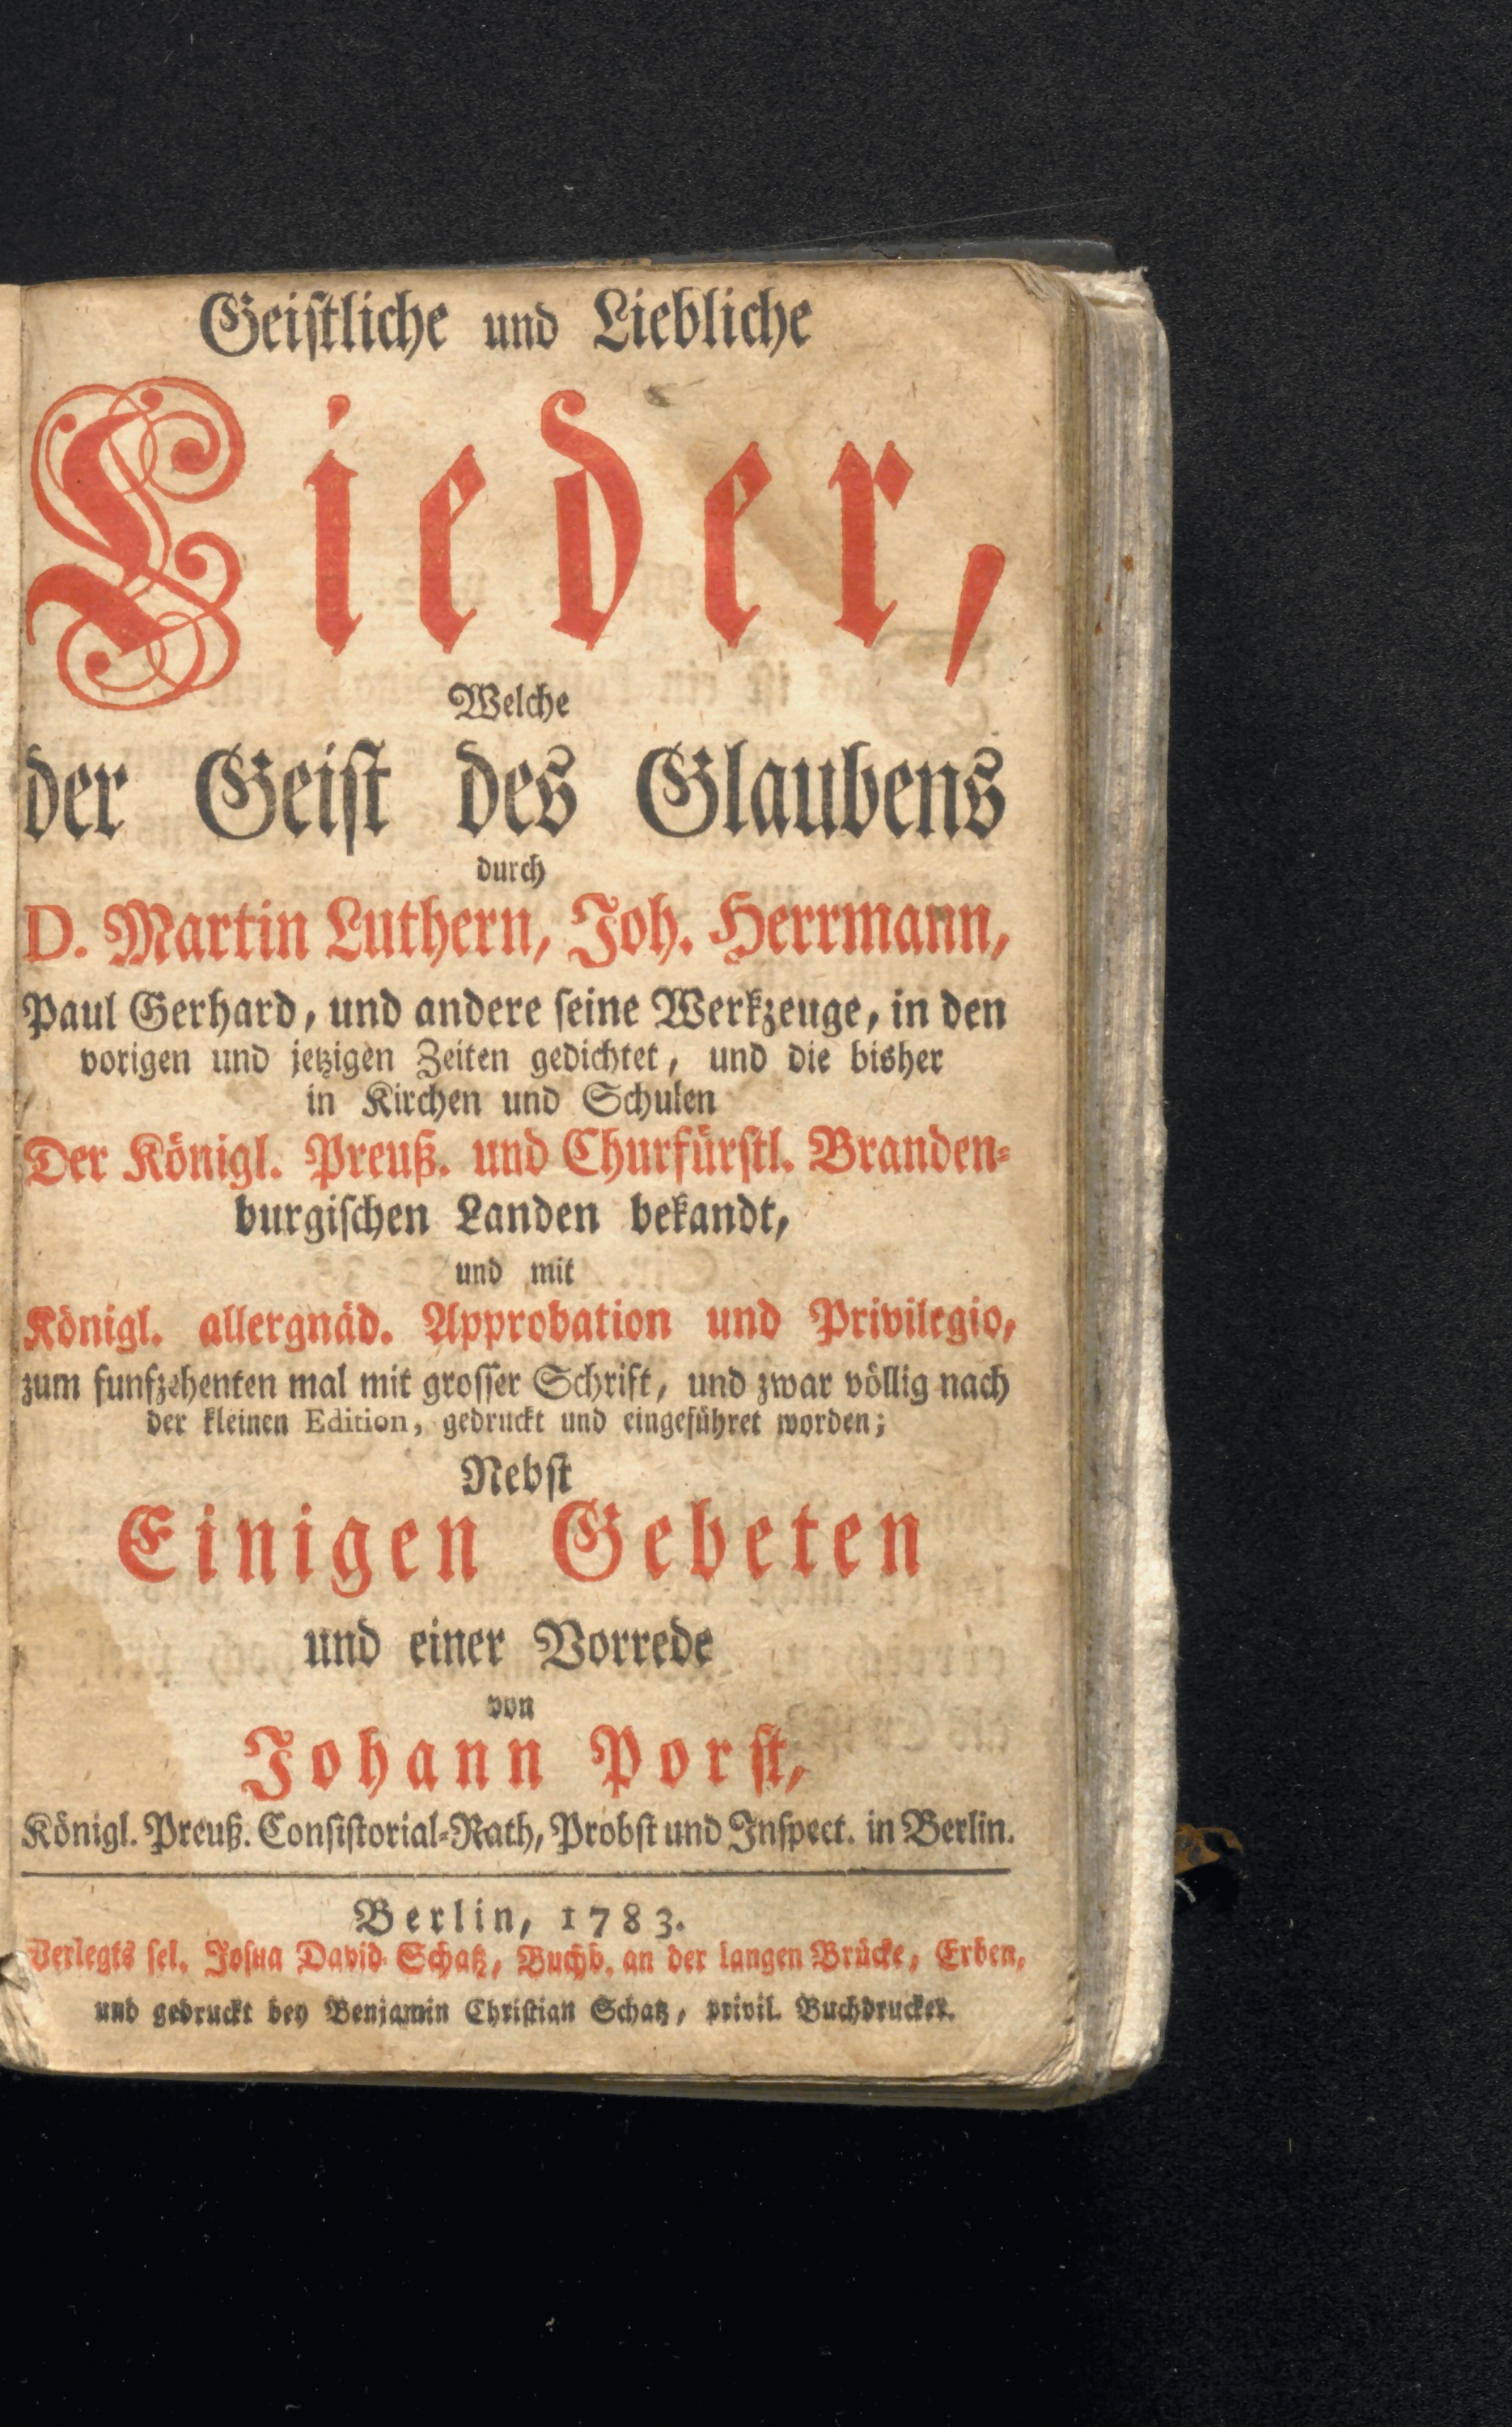 Geiſtliche und Liebliche
Lieder,
Welche
der Geiſt des Glaubens
durch
D. Martin Luthern, Joh. Herrmann,
Paul Gerhard, und andere ſeine Werkzeuge, in den
vorigen und jetzigen Zeiten gedichtet, und die bisher
in Kirchen und Schulen
Der Königl. Preuß. und Churfürſtl. Branden⸗
burgiſchen Landen bekandt,
und mit
Königl. allergnäd. Approbation und Privilegio,
zum funfzehenten mal mit groſſer Schrift, und zwar völlig nach
der kleinen Edition, gedruckt und eingeführet worden;
Nebſt
Einigen Gebeten
und einer Vorrede
von
Johann Porſt,
Königl. Preuß. Conſiſtorial⸗Rath, Probſt und Inſpect. in Berlin.
Berlin, 1783.
Verlegts ſel. Joſua David Schatz, Buchb. an der langen Brücke, Erben,
und gedruckt bey Benjamin Chriſtian Schatz, privil. Buchdrucker.